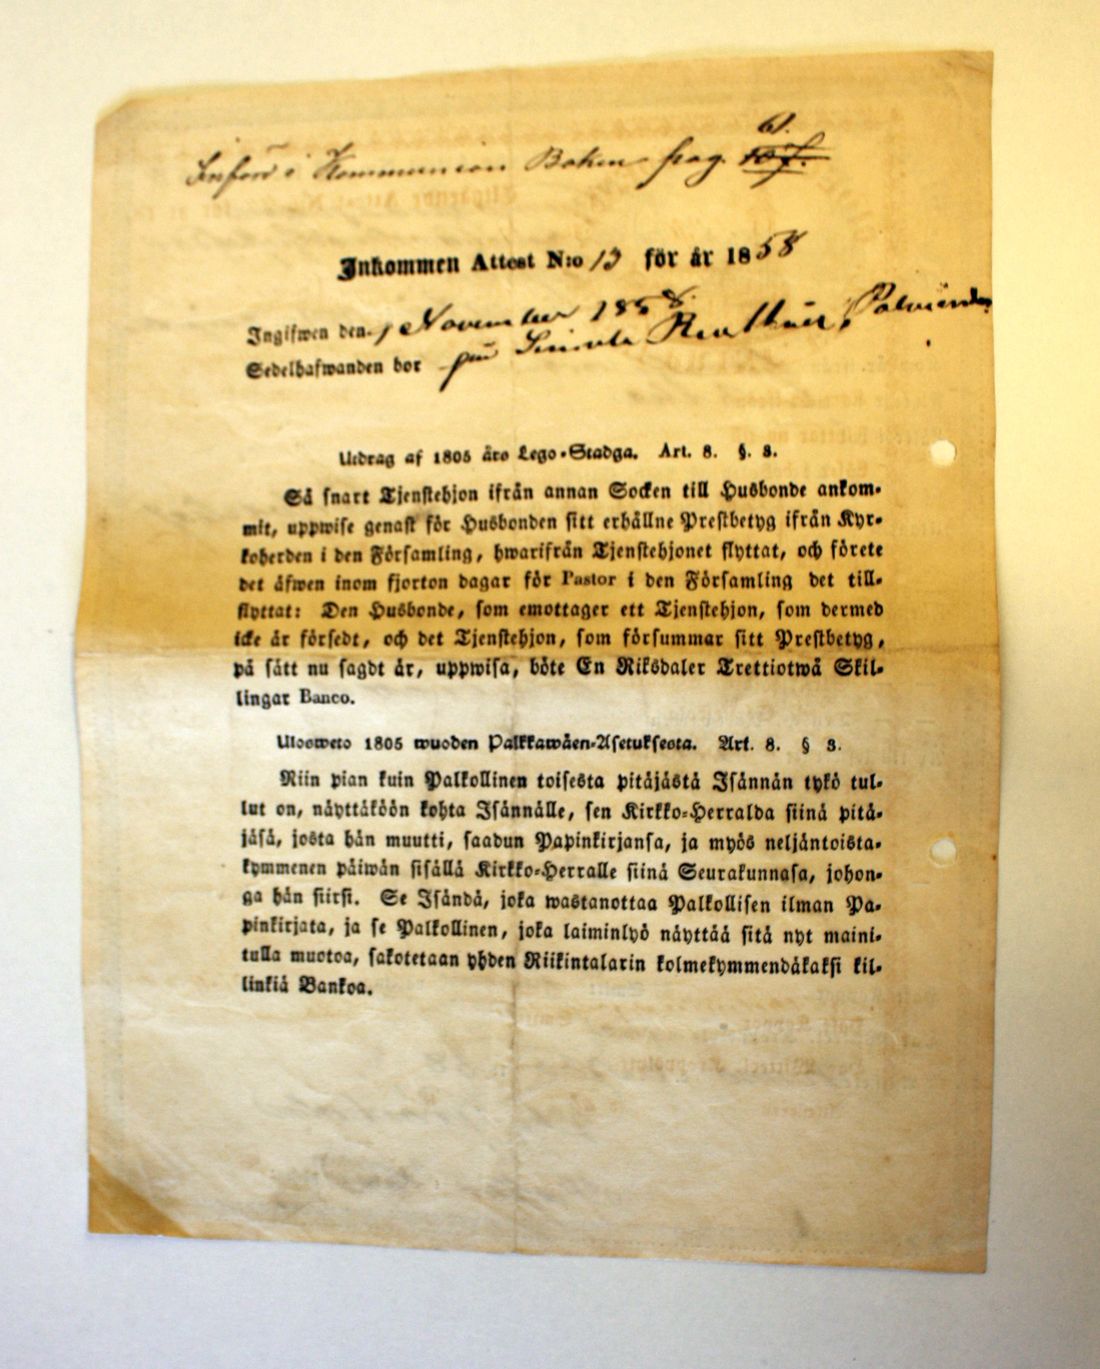 Införd i Kommunion Boken pag. 61.
Inkommen Attest N:o 13 för år 1858
Ingifwen den 1 November 1858.
Sedelhafwanden bor på
Utdrag af 1805 års Lego-Stadga. Art. 8. §. 3.
Så snart Tjenstehjon ifrån annan Socken till Husbonde ankom-
mit, uppwise genast för Husbonden sitt erhållne Prestbetyg ifrån Kyr-
koherden i den Församling, hwarifrån Tjenstehjonet flyttat, och förete
det äfwen inom fjorton dagar för Pastor i den Församling det till-
flyttat: Den Husbonde, som emottager ett Tjenstehjon, som dermed
icke är försedt, och det Tjenstehjon, som försummar sitt Prestbetyg,
på sätt nu sagdt är, uppwisa, böte En Riksdaler Trettiotwå Skil-
lingar Banco.
Ulosweto 1805 wuoden Palkkawäen-Asetuksesta. Art. 8. § 3.
Niin pian kuin Palkollinen toisesta pitäjästä Isännän tykö tul-
lut on, näyttäköön kohta Isännälle, sen Kirkko-Herralda siinä pitä-
jäsä, josta hän muutti, saadun Papinkirjansa, ja myös neljäntoista-
kymmenen päiwän sisällä Kirkko-Herralle siinä Seurakunnasa, johon-
ga hän siirsi. Se Isändä, joka wastanottaa Palkollisen ilman Pa-
pinkirjata, ja se Palkollinen, joka laiminlyö näyttää sitä nyt maini-
tulla muotoa, sakotetaan yhden Riikintalarin kolmekymmendäkaksi kil-
linkiä Bankoa.